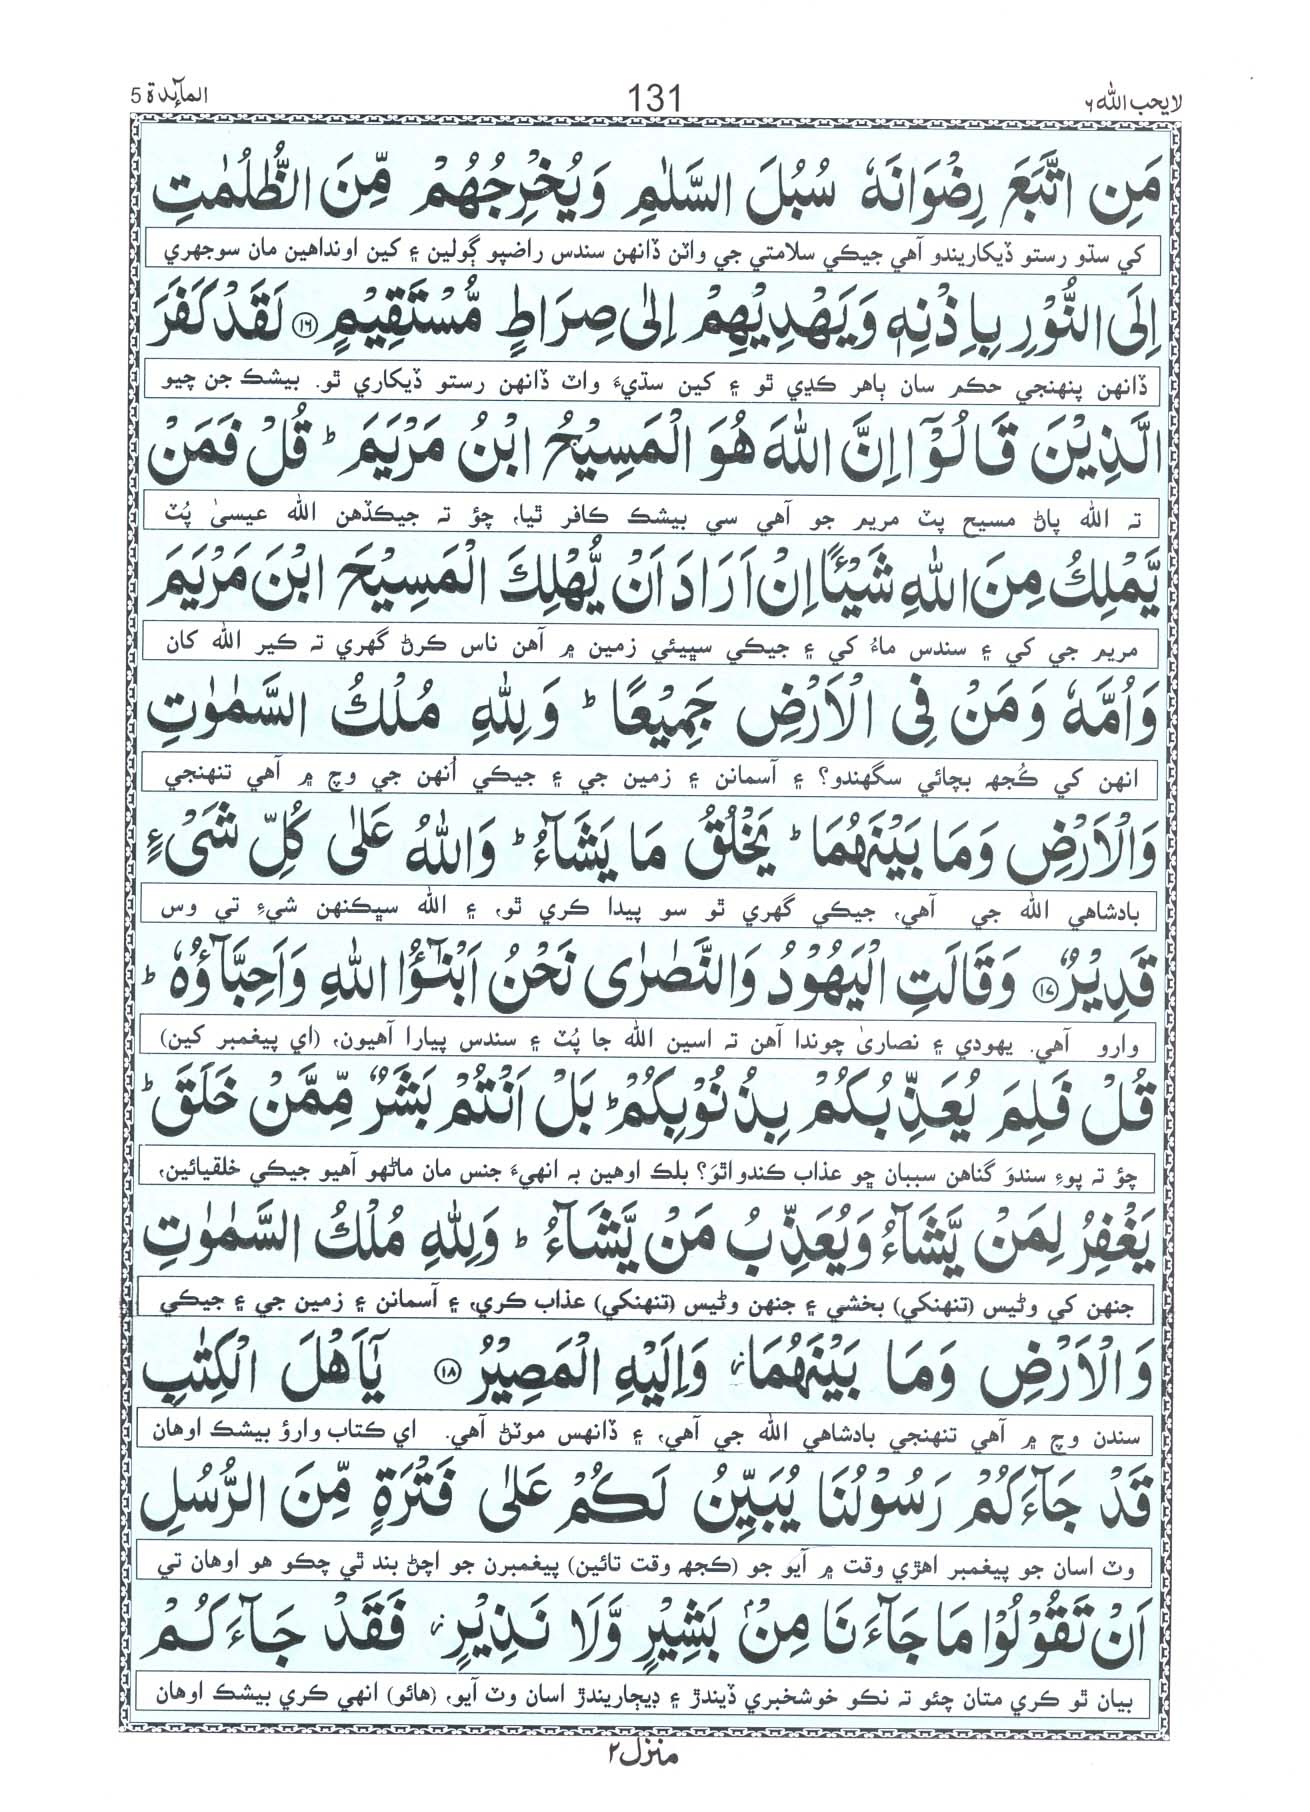 لايحب الله ۶
131
المآئدة 5
مَنِ اتَّبَعَ رِضْوَانَهٗ سُبُلَ السَّلٰمِ وَيُخْرِجُهُمْ مِّنَ الظُّلُمٰتِ
کي سڌو رستو ڏيکاريندو آهي جيڪي سلامتي جي واٽن ڏانهن سندس راضپو ڳولين ۽ کين اونداهين مان سوجهري
اِلَى النُّوْرِ بِاِذْنِهٖ وَيَهْدِيْهِمْ اِلٰى صِرَاطٍ مُّسْتَقِيْمٍ ۝۱۶ لَقَدْ كَفَرَ
ڏانهن پنهنجي حڪم سان ٻاهر ڪڍي ٿو ۽ کين سڌيءَ واٽ ڏانهن رستو ڏيکاري ٿو. بيشڪ جن چيو
الَّذِيْنَ قَالُوْٓا اِنَّ اللّٰهَ هُوَ الْمَسِيْحُ ابْنُ مَرْيَمَ ؕ قُلْ فَمَنْ
ته الله پاڻ مسيح پٽ مريم جو آهي سي بيشڪ ڪافر ٿيا، چؤ ته جيڪڏهن الله عيسيٰ پُٽ
يَّمْلِكُ مِنَ اللّٰهِ شَيْـًٔا اِنْ اَرَادَ اَنْ يُّهْلِكَ الْمَسِيْحَ ابْنَ مَرْيَمَ
مريم جي کي ۽ سندس ماءُ کي ۽ جيڪي سڀيئي زمين ۾ آهن ناس ڪرڻ گهري ته ڪير الله کان
وَاُمَّهٗ وَمَنْ فِى الْاَرْضِ جَمِيْعًا ؕ وَلِلّٰهِ مُلْكُ السَّمٰوٰتِ
انهن کي ڪُجهه بچائي سگهندو؟ ۽ آسمانن ۽ زمين جي ۽ جيڪي اُنهن جي وچ ۾ آهي تنهنجي
وَالْاَرْضِ وَمَا بَيْنَهُمَا ؕ يَخْلُقُ مَا يَشَآءُ ؕ وَاللّٰهُ عَلٰى كُلِّ شَىْءٍ
بادشاهي الله جي آهي، جيڪي گهري ٿو سو پيدا ڪري ٿو، ۽ الله سڀڪنهن شيءِ تي وس
قَدِيْرٌ ۝۱۷ وَقَالَتِ الْيَهُوْدُ وَالنَّصٰرٰى نَحْنُ اَبْنٰٓؤُا اللّٰهِ وَاَحِبَّآؤُهٗ ؕ
وارو آهي. يهودي ۽ نصاريٰ چوندا آهن ته اسين الله جا پُٽ ۽ سندس پيارا آهيون، (اي پيغمبر کين)
قُلْ فَلِمَ يُعَذِّبُكُمْ بِذُنُوْبِكُمْ ؕ بَلْ اَنْتُمْ بَشَرٌ مِّمَّنْ خَلَقَ ؕ
چؤ ته پوءِ سندوَ گناهن سببان ڇو عذاب ڪندو اٿوَ؟ بلڪ اوهين به انهيءَ جنس مان ماڻهو آهيو جيڪي خلقيائين،
يَغْفِرُ لِمَنْ يَّشَآءُ وَيُعَذِّبُ مَنْ يَّشَآءُ ؕ وَلِلّٰهِ مُلْكُ السَّمٰوٰتِ
جنهن کي وڻيس (تنهنکي) بخشي ۽ جنهن وڻيس (تنهنکي) عذاب ڪري، ۽ آسمانن ۽ زمين جي ۽ جيڪي
وَالْاَرْضِ وَمَا بَيْنَهُمَا ز وَاِلَيْهِ الْمَصِيْرُ ۝۱۸ يٰٓاَهْلَ الْكِتٰبِ
سندن وچ ۾ آهي تنهنجي بادشاهي الله جي آهي، ۽ ڏانهس موٽڻ آهي. اي ڪتاب وارؤ بيشڪ اوهان
قَدْ جَآءَكُمْ رَسُوْلُنَا يُبَيِّنُ لَكُمْ عَلٰى فَتْرَةٍ مِّنَ الرُّسُلِ
وٽ اسان جو پيغمبر اهڙي وقت ۾ آيو جو (ڪجهه وقت تائين) پيغمبرن جو اچڻ بند ٿي چڪو هو اوهان تي
اَنْ تَقُوْلُوْا مَا جَآءَنَا مِنْۢ بَشِيْرٍ وَّلَا نَذِيْرٍ ز فَقَدْ جَآءَكُمْ
بيان ٿو ڪري متان چئو ته نڪو خوشخبري ڏيندڙ ۽ ڊيڄاريندڙ اسان وٽ آيو، (هائو) انهي ڪري بيشڪ اوهان
منزل ۲